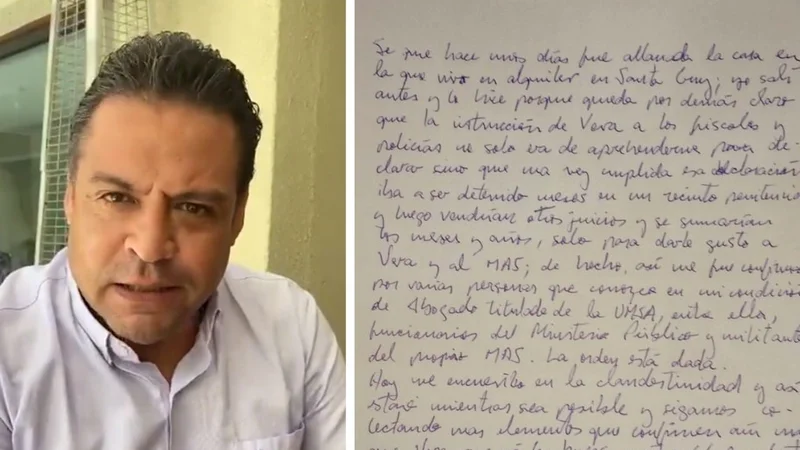 Se que hace unos días fue allanada la casa en
la que vivo en alquiler en Santa Cruz; yo salí
antes y lo hice porque queda por demás claro
que la instrucción de Vera a los fiscales y
policías no solo era de aprehenderme para de-
clarar sino que una vez cumplida esa declaración
iba a ser detenido meses en un recinto penitencia
y luego vendrían otros juicios y se sumarían
los meses y años, solo para darle gusto a
Vera y al MAS; de hecho, así me fue confirma
por varias personas que conozco en mi condición
de Abogado titulado de la UMSA, entre ella,
funcionarios del Ministerio Público y militante
del propio MAS. La orden está dada.
Hoy me encuentro en la clandestinidad y así
estaré mientras sea posible y sigamos co-
lectando mas elementos que confirmen aún